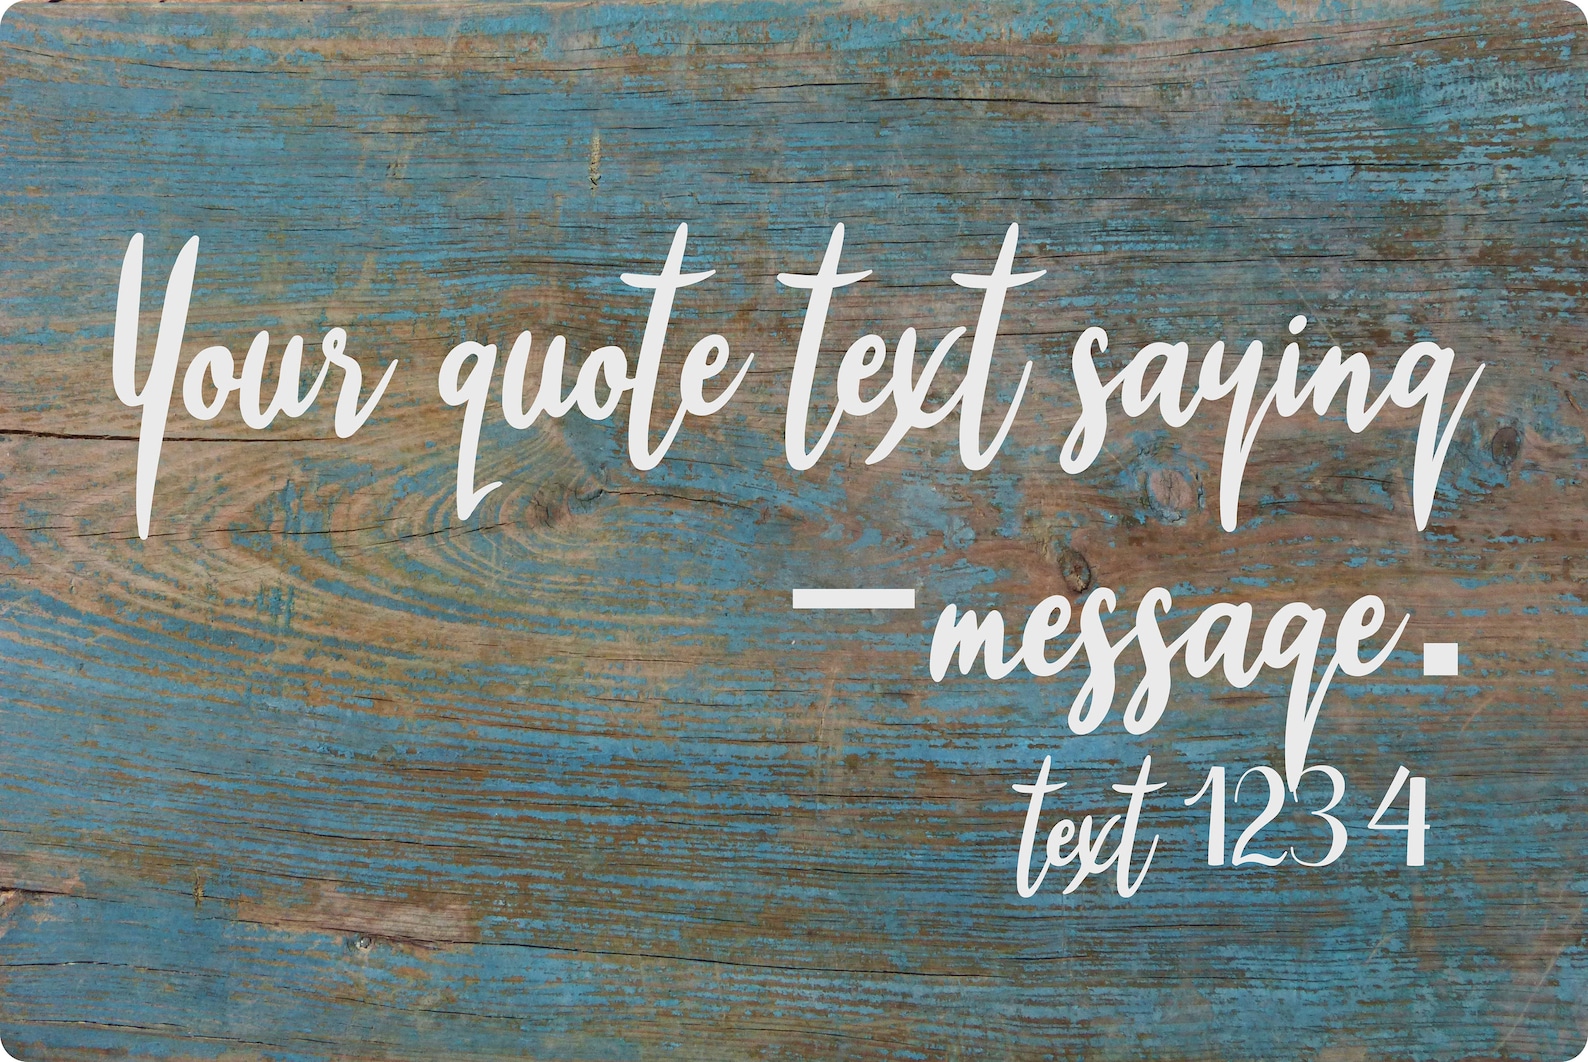 Your quote text saying
– message.
text 1234